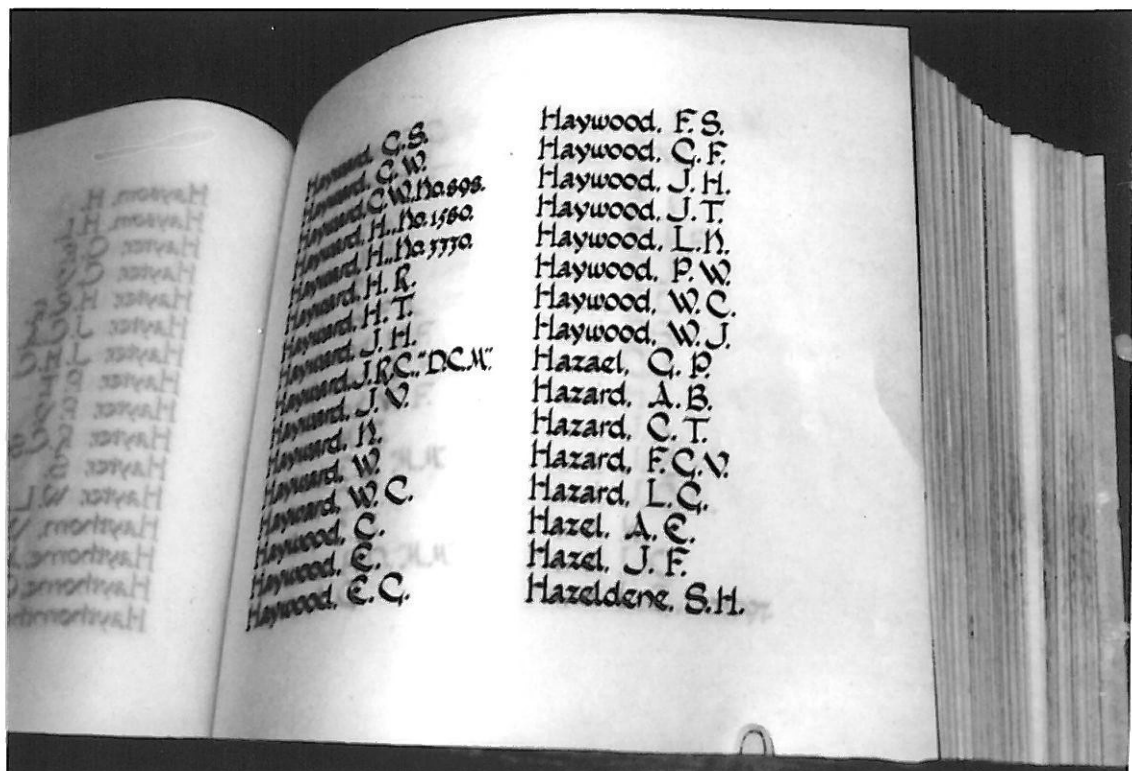 Hayward, G.S.
Hayward, G.W.
Hayward, G.W. No.898.
Hayward, H., No.1560.
Hayward, H., No.3330.
Hayward, H. R.
Hayward, H. T.
Hayward, J. H.
Hayward, J.R.C., "D.C.M".
Hayward, J. V.
Hayward, N.
Hayward, W.
Hayward, W. C.
Haywood, C.
Haywood, E.
Haywood, E. G.
Haywood, F. S.
Haywood, G. F.
Haywood, J. H.
Haywood, J. T.
Haywood, L. N.
Haywood, P. W.
Haywood, W. C.
Haywood, W. J.
Hazael, G. P.
Hazard, A. B.
Hazard, C. T.
Hazard, F. G. V.
Hazard, L. G.
Hazel, A. E.
Hazel, J. F.
Hazeldene, S. H.